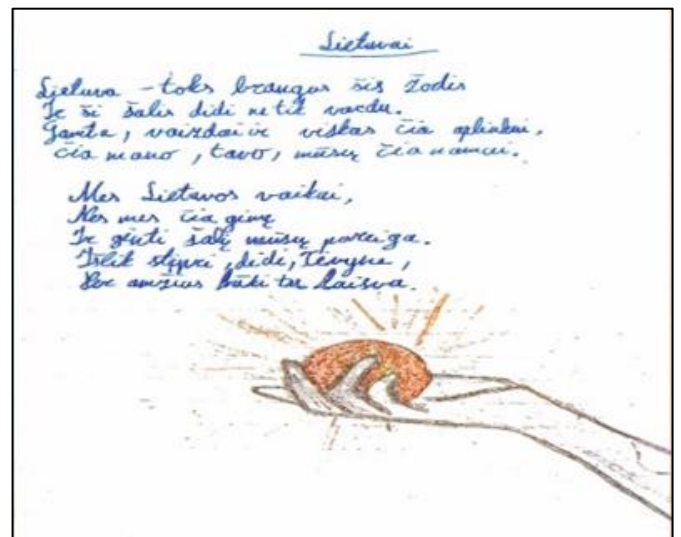 Lietuvai
Lietuva - toks brangus šis žodis
Ir ši šalis didi ne tik vardu.
Gamta, vaizdai ir viskas čia aplinkui,
čia mano, tavo, mūsų čia namai.
Mes Lietuvos vaikai,
Nes mes čia gimę
Ir ginti šalį mūsų pareiga.
Išlik stipri, didi, Tėvyne,
Per amžius būki tu laisva.